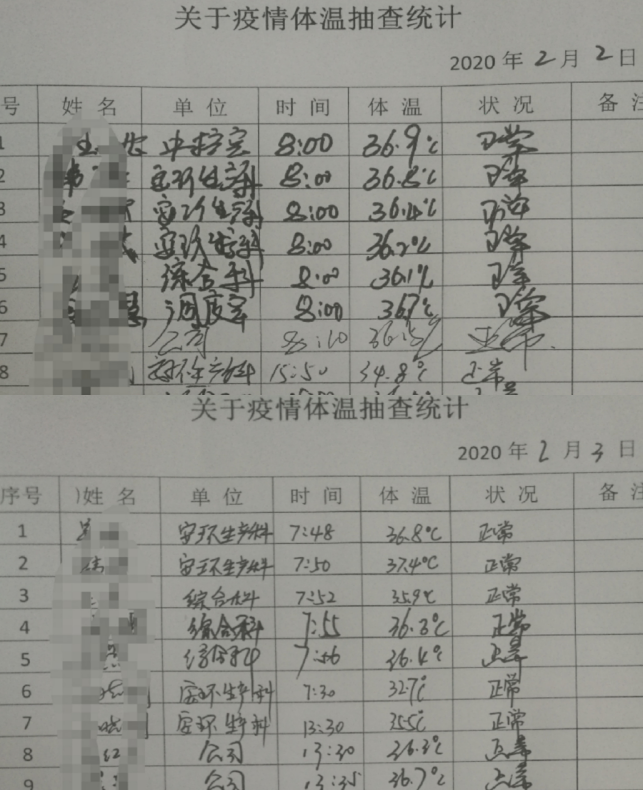 关于疫情体温抽查统计
2020 年 2 月 2 日
号 姓 名 单 位 时 间 体 温 状 况 备 注
1 中控室 8:00 36.9℃ 正常
2 安环生产科 8:00 36.8℃ 正常
3 安环生产科 8:00 36.4℃ 正常
4 安环生产科 8:00 36.2℃ 正常
5 综合科 8:00 36.1℃ 正常
6 调度室 8:00 36.7℃ 正常
7 公司 8:10 正常
8 15:50 34.8℃ 正常
关于疫情体温抽查统计
2020 年 2 月 3 日
序号 姓 名 单 位 时 间 体 温 状 况 备 注
1 安环生产科 7:48 36.8℃ 正常
2 安环生产科 7:50 37.4℃ 正常
3 综合科 7:52 35.9℃ 正常
4 综合科 7:55 36.3℃ 正常
5 综合科 7:56 36.4℃ 正常
6 安环生产科 7:30 32.7℃ 正常
7 安环生产科 13:30 35.5℃ 正常
8 公司 13:30 36.3℃ 正常
9 公司 13:35 36.7℃ 正常